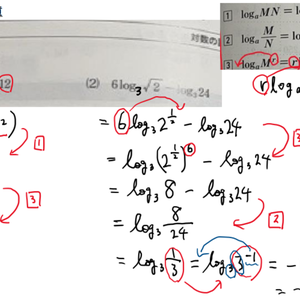 対数の
12
(2) 6log₃√2 − log₃24
[1] logₐMN = lo
[2] logₐ M/N = lo
[3] logₐMʳ = r
r log
²)
[1]
[3]
= 6 log₃ 2^(1/2) − log₃ 24
[3]
= log₃ (2^(1/2))^6 − log₃ 24
= log₃ 8 − log₃ 24
= log₃ 8/24
[2]
= log₃ 1/3 = log₃ 3⁻¹ = −